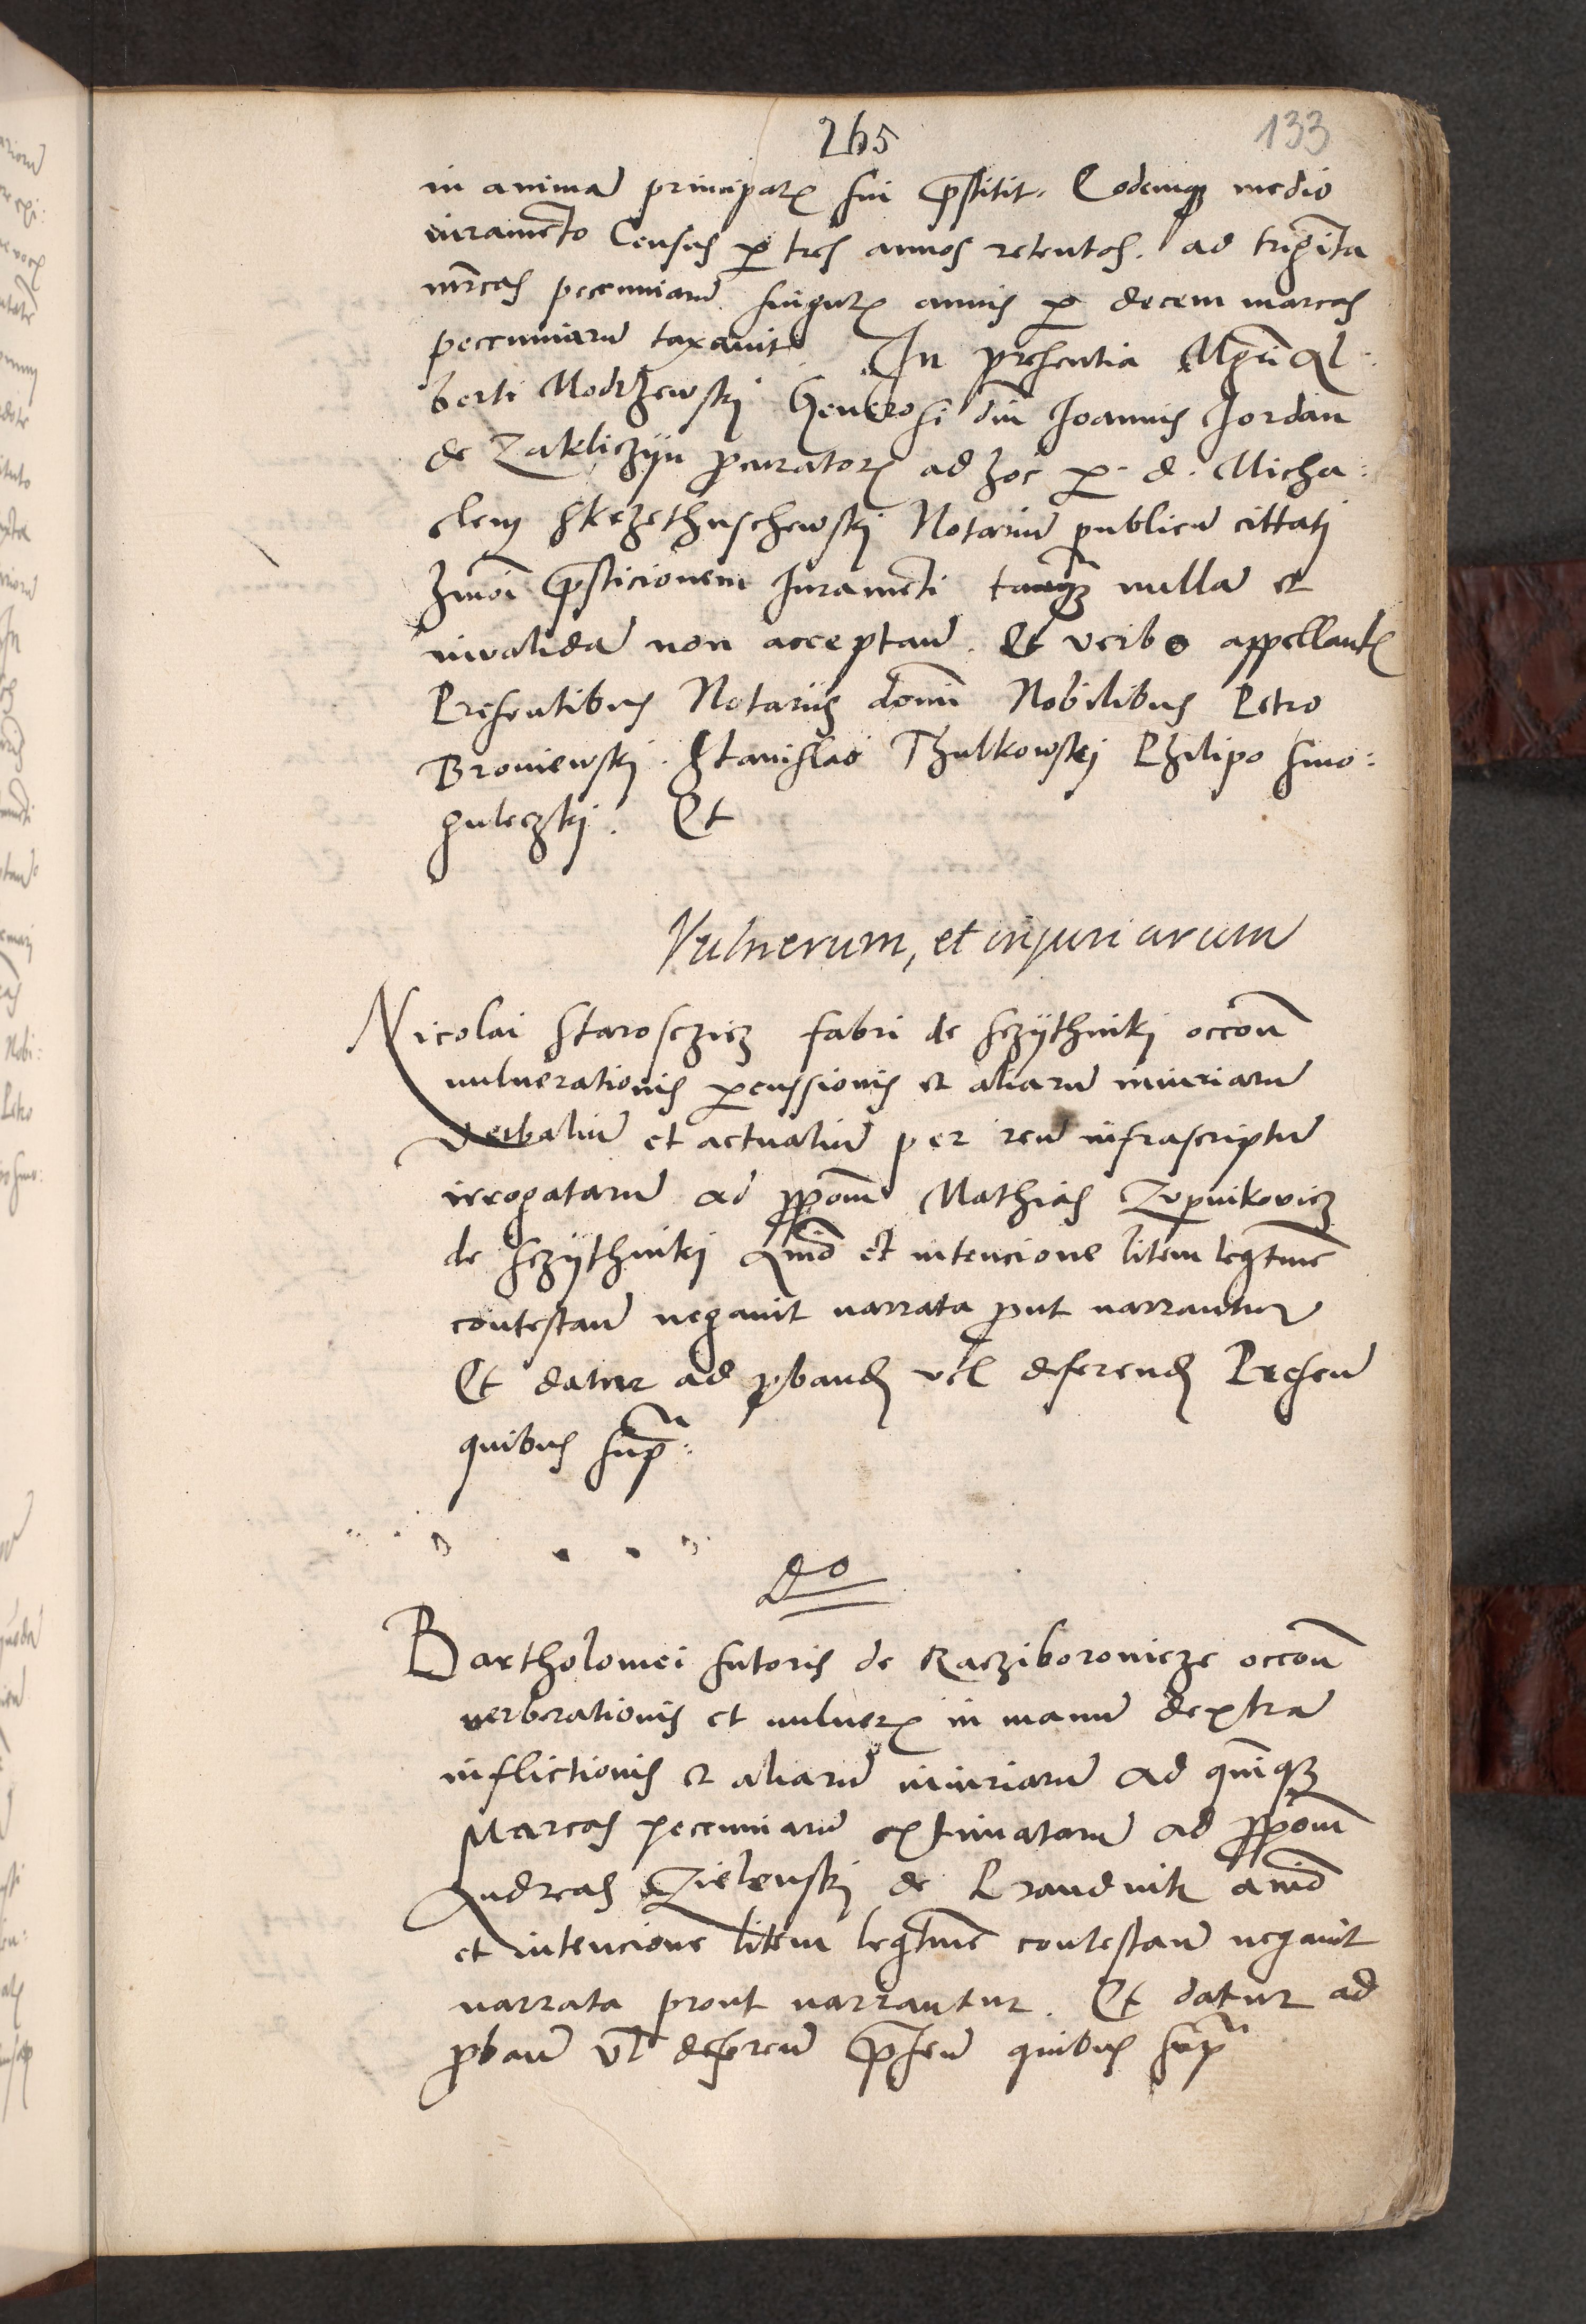 265 133
in animā principal sui p̄stitit. Eodemq₃ medio
iuramēto Census p tres annos retentos. ad trigīta
mrcas pecuniarū singul annis p decem marcas
pecuniarū taxavit In presentia Mgri Al-
berti Modrzewskj Generosi dni Joannis Jordan
de Zakliczyn procurator ad hoc p. d. Micha:
elem Skrzethuschewskj Notariū publicū cittatj
hmoi p̄sticionem Juramēti tanq₃ nullā et
invalidā non acceptan̄. Et verbo appellant
Presentibus Notariis domī Nobilibus Petro
Broniewskj. Stanislao Thulkowskj Philipo Smo:
guleczkj. Et
Vulnerum, et injuriarum
Nicolai Starosczicz fabri de Sczythnikj occoñ
vulnerationis pcussionis et aliarū iniuriarū
verbaliū et actualiū per reū infrascriptū
irrogatarū ad ppom Mathias Zupnikovicz
de Sczythnikj aīo et intencione litem legtīme
contestan̄ negavit narrata prout narrantur
Et datur ad pband vel deferend Presen̄
quibus supᵃ:
do
Bartholomei sutoris de Racziboronicze occoñ
verberationis et vulner in manū dextrā
inflictionis et aliarū iniuriarū ad quīq₃
Marcas pecuniarū extimatarū ad ppom
Andreas Zielenskj de Prandnik aīo
et intencione litem legtīme contestan̄ negavit
narrata prout narrantur. Et datur ad
pban̄ vl deferen̄ p̄sen̄ quibus supᵃ